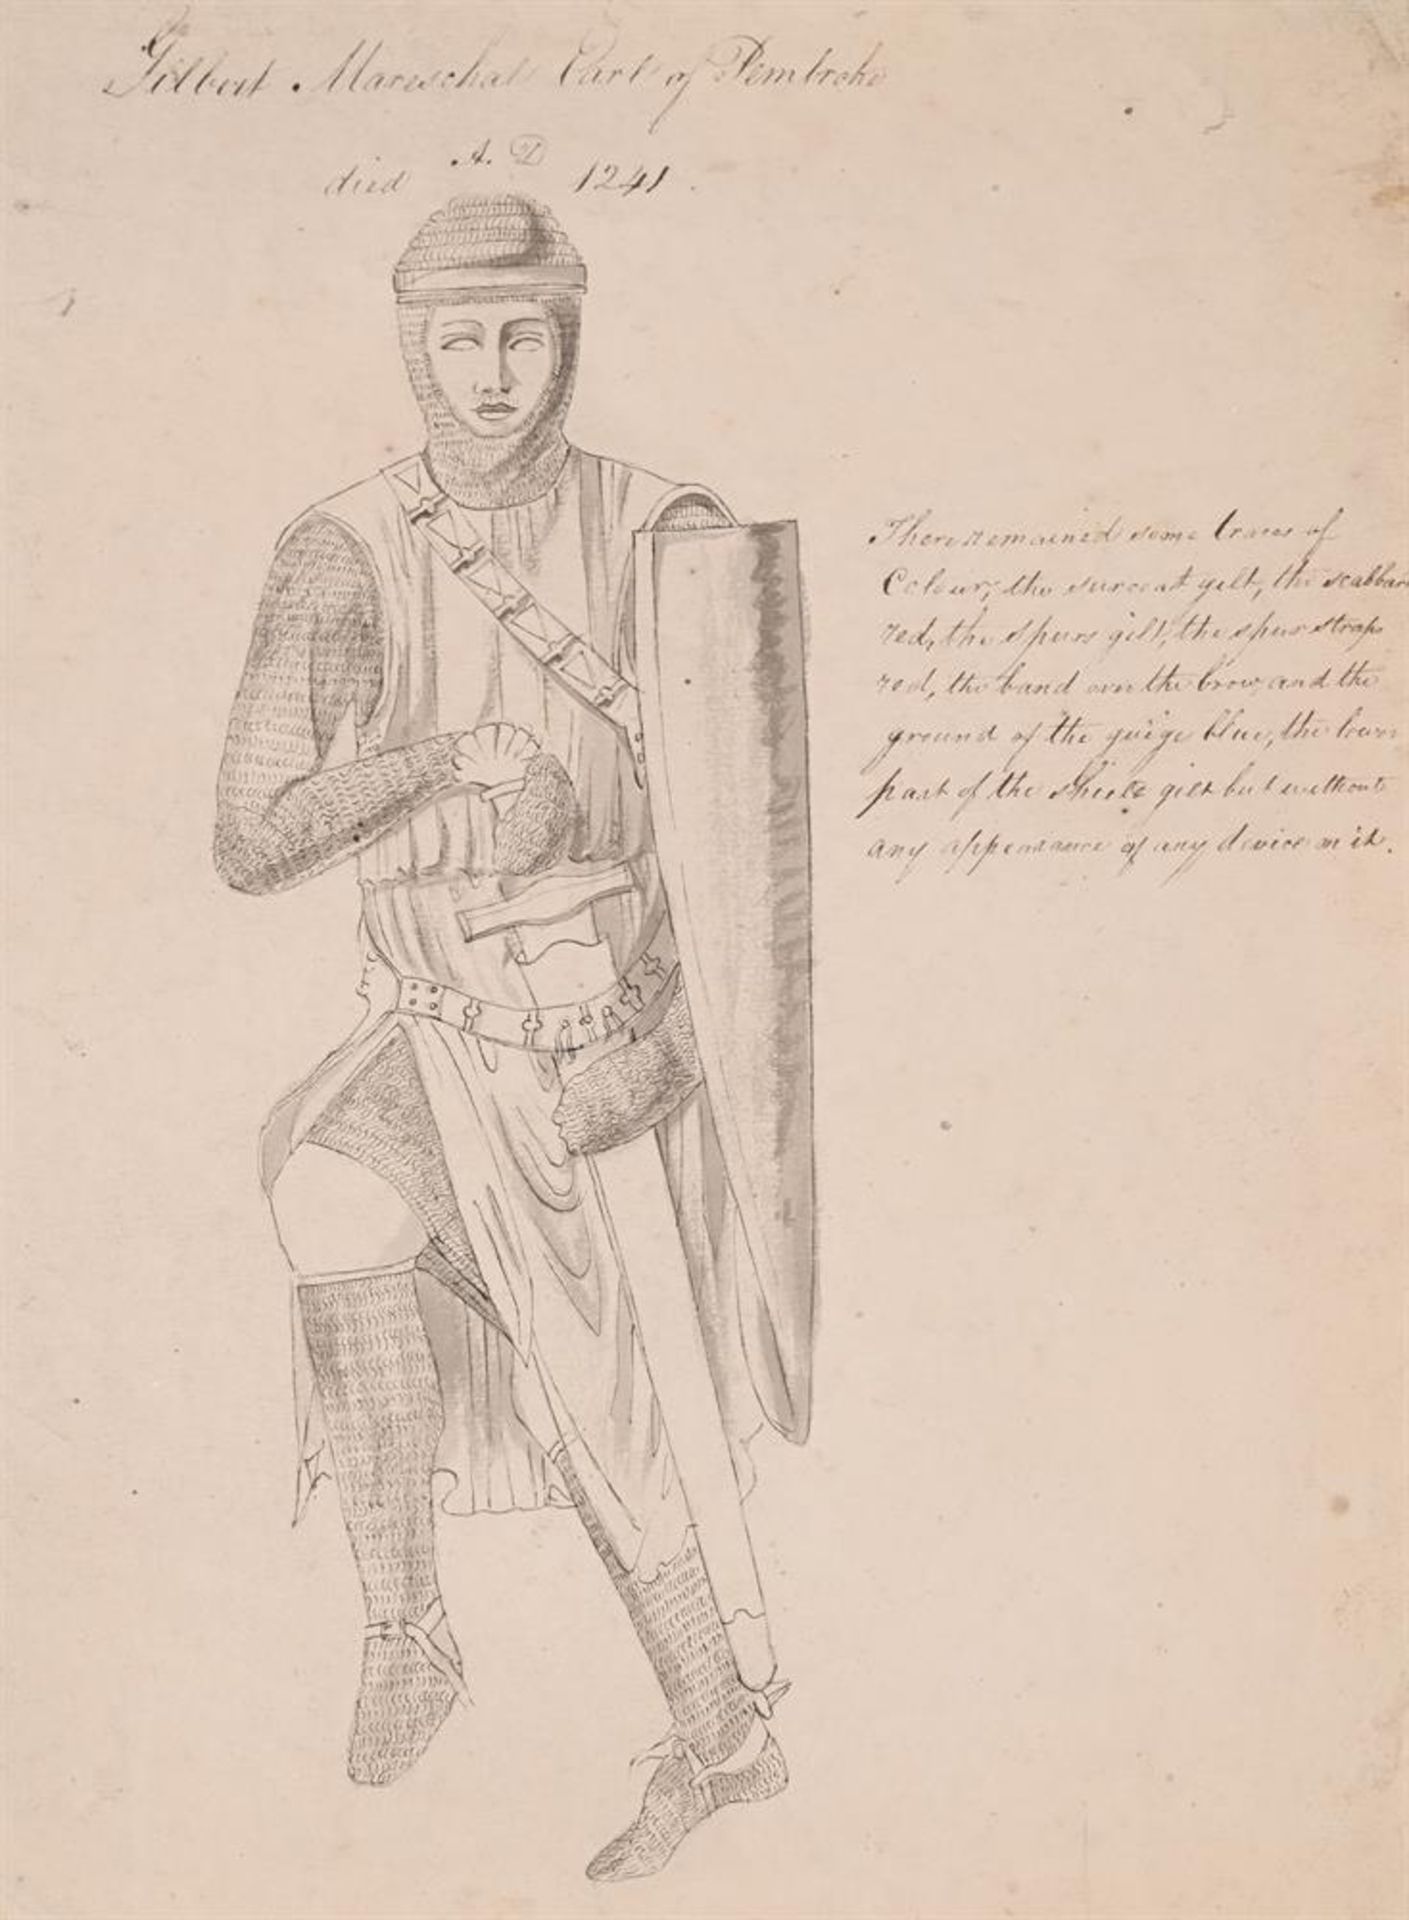 Gilbert Mareschal Earl of Pembroke
died A. D 1241.
There remained some traces of
Colour, the surcoat gilt, the scabbard
red, the spurs gilt, the spur straps
red, the band over the brow and the
ground of the guige blue, the lower
part of the shield gilt but without
any appearance of any device on it.